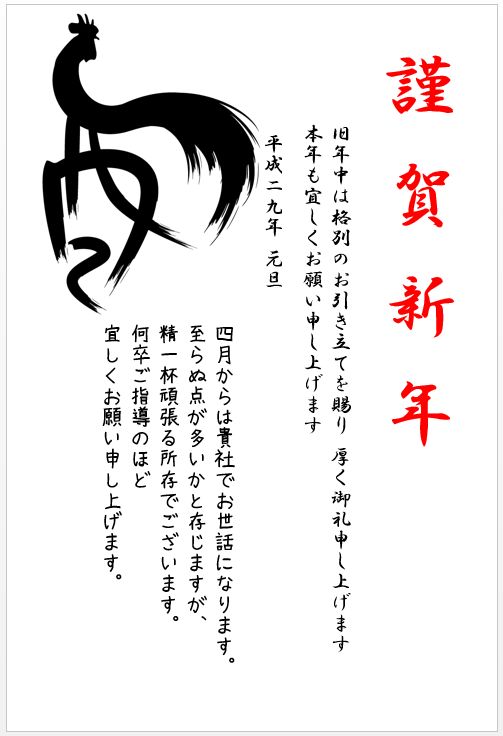 謹賀新年
旧年中は格別のお引き立てを賜り 厚く御礼申し上げます
本年も宜しくお願い申し上げます
平成二九年 元旦
四月からは貴社でお世話になります。
至らぬ点が多いかと存じますが、
精一杯頑張る所存でございます。
何卒ご指導のほど
宜しくお願い申し上げます。